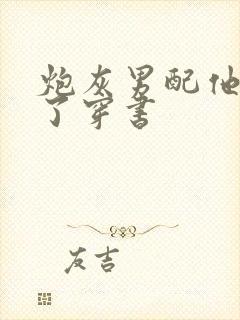 炮灰男配他
了穿书
友吉